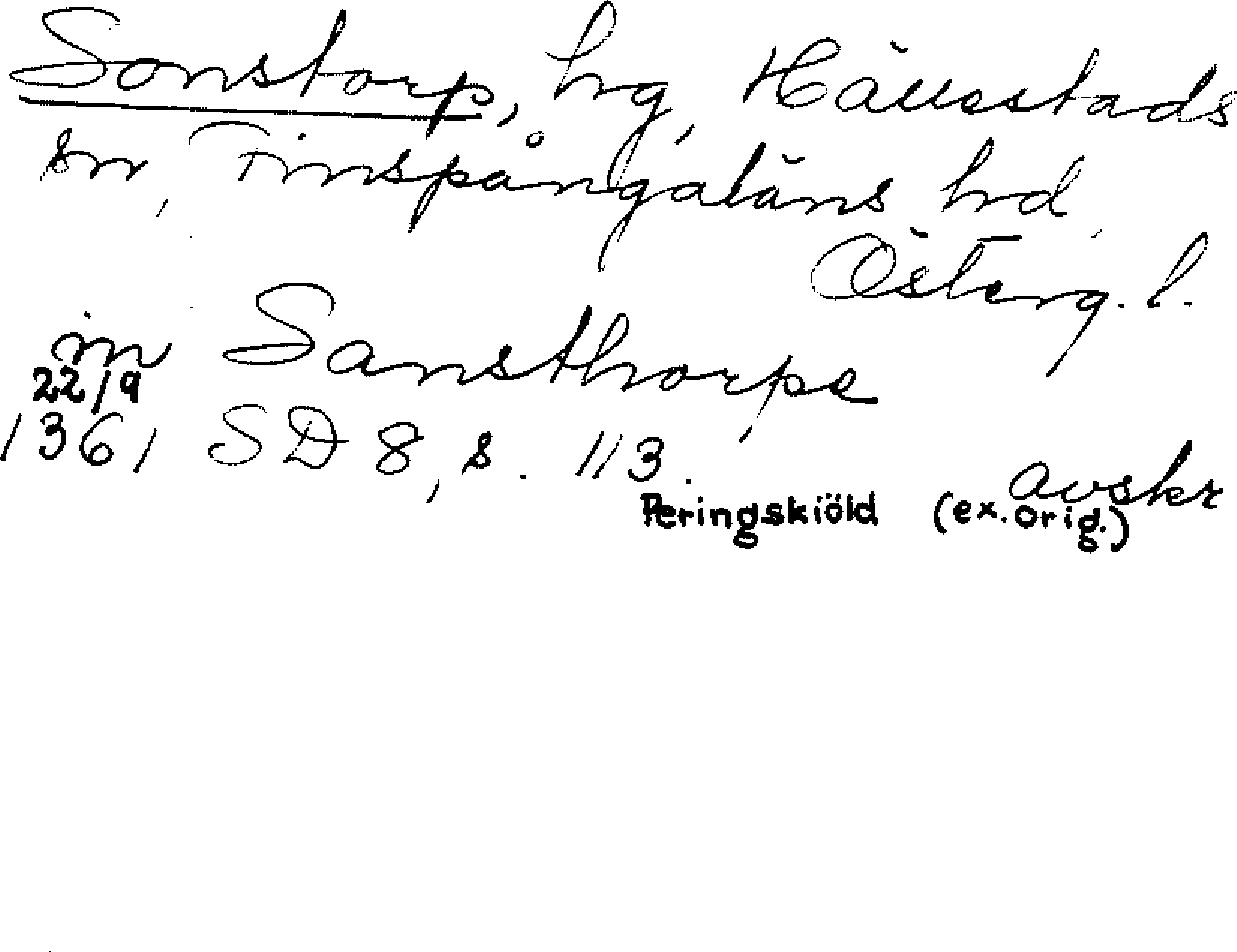 Sonstorp, hg, Hällestads
sn, Finspångaläns hd
Österg. l.
in Sansthorpe
22/9
1361 SD 8, s. 113. avskr
Peringskiöld (ex. orig.)